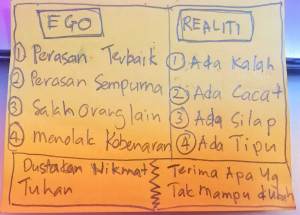 EGO
① Perasan Terbaik
② Perasan Sempurna
③ Salah Orang lain
④ Menolak Kebenaran
Dustakan Nikmat
Tuhan
REALITI
① Ada Kalah
② Ada Cacat
③ Ada Silap
④ Ada Tipu
Terima Apa Yg
Tak Mampu diubah